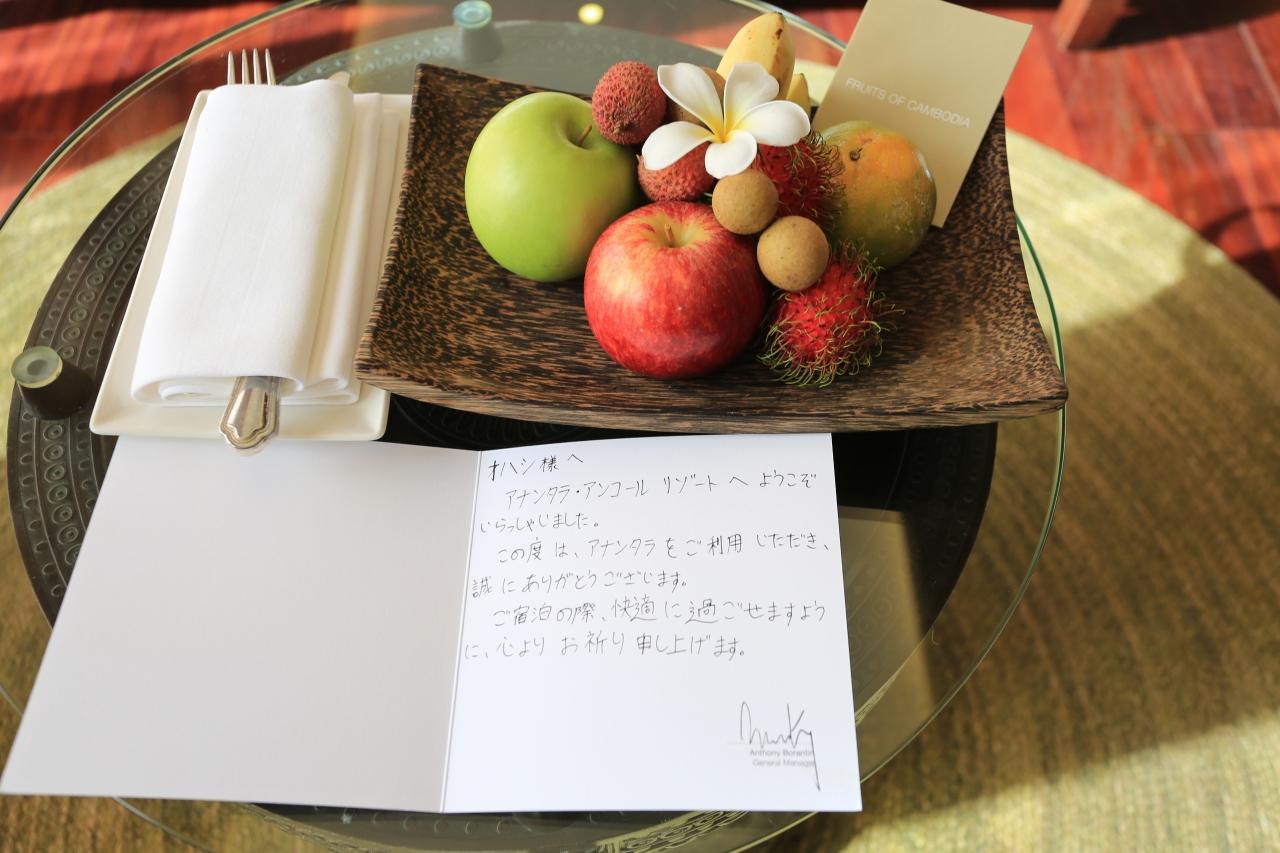 FRUITS OF CAMBODIA
オハシ様へ
アナンタラ・アンコール リゾート へ ようこそ
いらっしゃいました。
この度は、アナンタラをご利用 いただき、
誠にありがとうございます。
ご宿泊の際、快適に過ごせますよう
に、心より お祈り申し上げます。
Anthony Borantin
General Manager